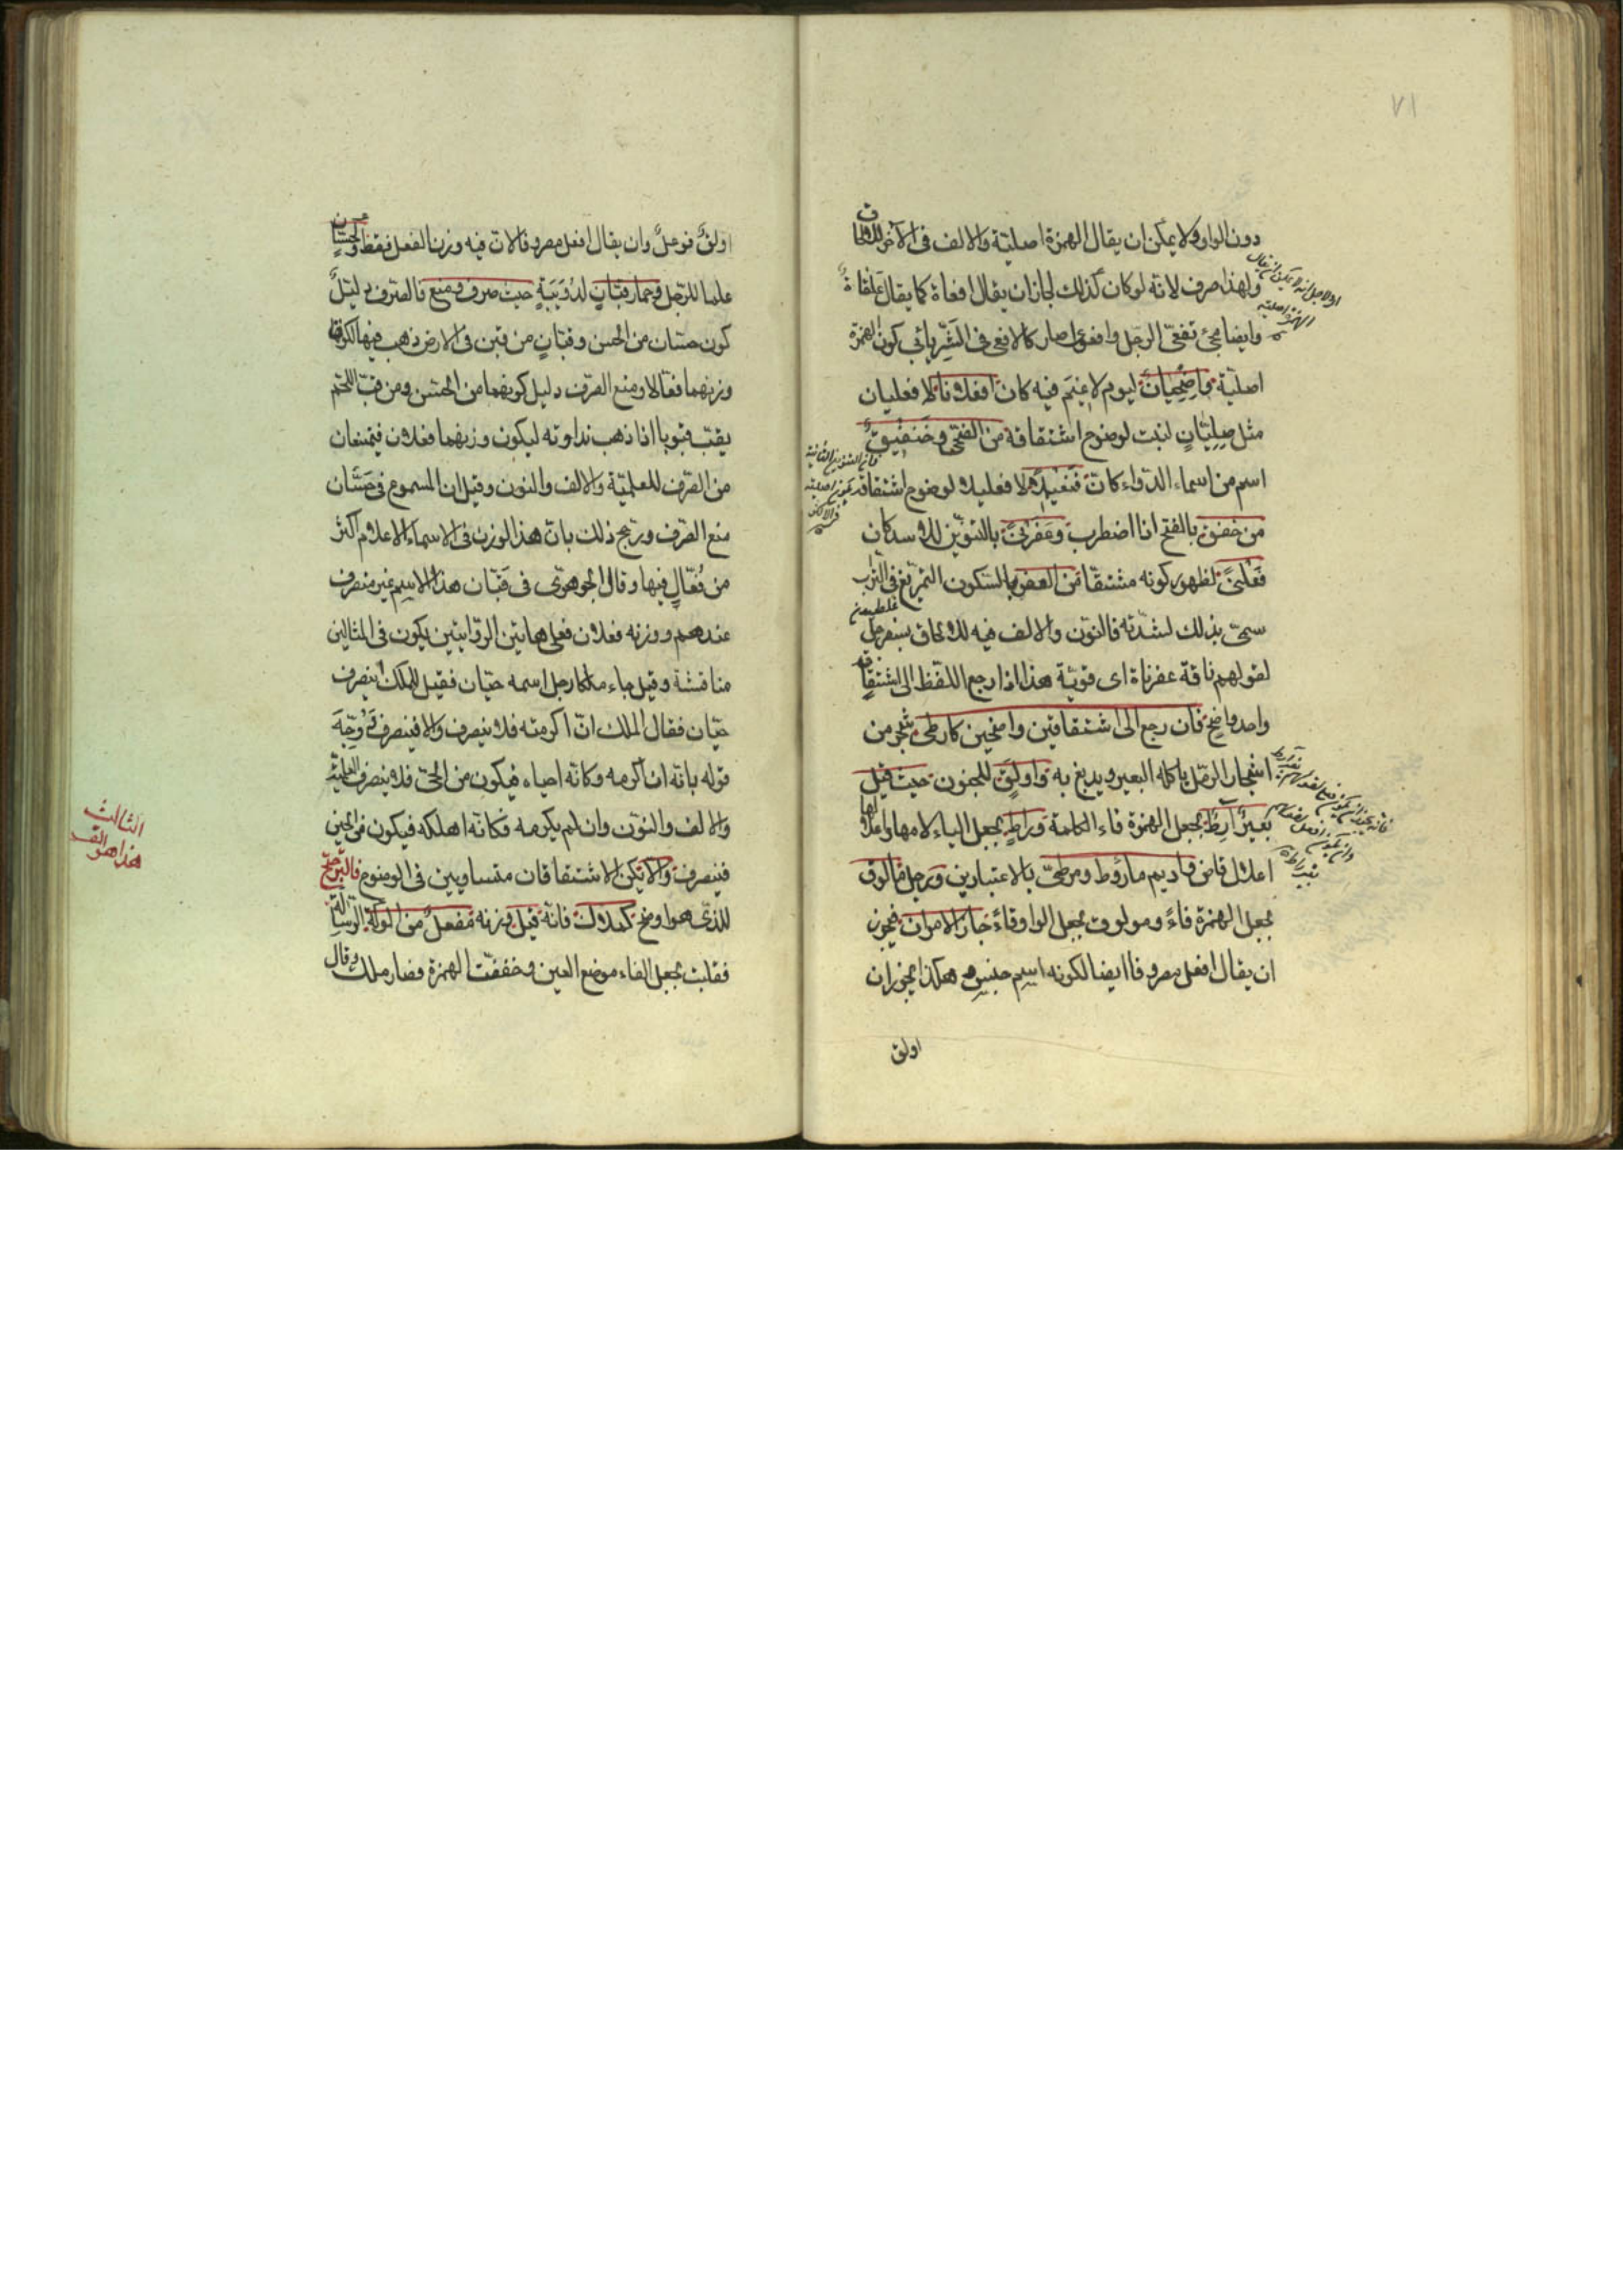 ٧١
دون الواو ولا يمكن ان يقال الهمزة اصلية والالف فى الآخر للالحاق
ولهذا صرف لانه لو كان كذلك لجاز ان يقال افعاة كما يقال علقاة
وايضا مجئ تفعّى الرجل وافعى صار كالافعى فى الشر يأبى كون الهمزة
اصلية واضحيان ليوم لا غيم فيه كان افعلانا لا فعليان
مثل صليان لنبت لوضوح اشتقاقه من الضحى وخنفقيق
اسم من اسماء الدواء كان فنعيلا لا فعليلا لوضوح اشتقاقه
من خفق بالفتح اذا اضطرب وعفرنى بالتنوين للاسد كان
فعلنى لظهور كونه مشتقا من العفر بالسكون التمريغ فى التراب
سمى بذلك لشدته فالنون والالف فيه للالحاق بسفرجل
لقولهم ناقة عفرناة اى قوية هذا اذا رجع اللفظ الى اشتقاق
واحد واضح فان رجع الى اشتقاقين واضحين كارطى شجر من
اشجار الرمل ياكله البعير ويدبغ به واولق للجنون حيث قيل
بعير آرط بجعل الهمزة فاء الكلمة وراط بجعل الياء لامها واعلالها
اعلال قاض واديم ماروط ومرطى بالاعتبارين ورجل مالوق
بجعل الهمزة فاءً ومولوق بجعل الواو فاءً جاز الامران فيجوز
ان يقال افعل مصروفا ايضا لكونه اسم جنس هكذا يجوز ان
اولق
اولق فوعلٌ وان يقال افعل مصروفا لان فيه وزن الفعل فقط وكحسان
علما للرجل وحمار قبان لدويبة حيث صرف ومنع فالصرف دليل
كون حسان من الحسن وقبان من قبن فى الارض ذهب فيها لكون
وزنهما فعّالا ومنع الصرف دليل كونهما من الحسّ ومن قبّ اللحم
يقبّ قبوبا اذا ذهب نداوته ليكون وزنهما فعلان فيمتنعان
من الصرف للعلمية والالف والنون وقيل ان المسموع فى حسّان
منع الصرف ورجح ذلك بان هذا الوزن فى الاسماء الاعلام اكثر
من فعّال فيها وقال الجوهرى فى قبّان هذا الاسم غير منصرف
عندهم ووزنه فعلان فعلى هاتين الروايتين يكون فى المثالين
مناقشة وقيل جاء ملكا رجل اسمه حيّان فقيل للملك اينصرف
حيّان فقال الملك ان اكرمته فلا ينصرف والا فينصرف ووجّه
قوله بانه ان اكرمه وكانه احياه فيكون من الحىّ فلا ينصرف للعلمية
والالف والنون وان لم يكرمه فكانه اهلكه فيكون من الحين
فينصرف والا يكن الاشتقاقان متساويين فى الوضوح فالترجيح
للذى هو اوضح كملاك فانه قيل وزنه مفعل من الالوكة الرسالة
فقلبت بجعل الفاء موضع العين وخففت الهمزة فصار ملك وقال
الثالث
هذا هو